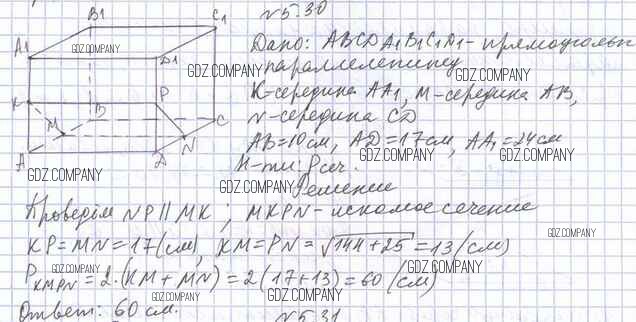 N 5.30
B1 C1
A1 D1
GDZ.COMPANY
Дано: ABCDA1B1C1D1 - прямоугольн
параллелепипед
GDZ.COMPANY
K P
K - середина AA1, M - середина AB,
M B C
N - середина CD
GDZ.COMPANY
A D N
AB = 10 см, AD = 17 см, AA1 = 24 см
GDZ.COMPANY
Н-ти: Pсеч.
GDZ.COMPANY
Решение
Проведём NP || MK; MKPN - искомое сечение
GDZ.COMPANY
KP = MN = 17 (см), KM = PN = √144+25 = 13 (см)
GDZ.COMPANY GDZ.COMPANY
PKMPN = 2·(KM + MN) = 2(17+13) = 60 (см)
GDZ.COMPANY
Ответ: 60 см.
N 5.31